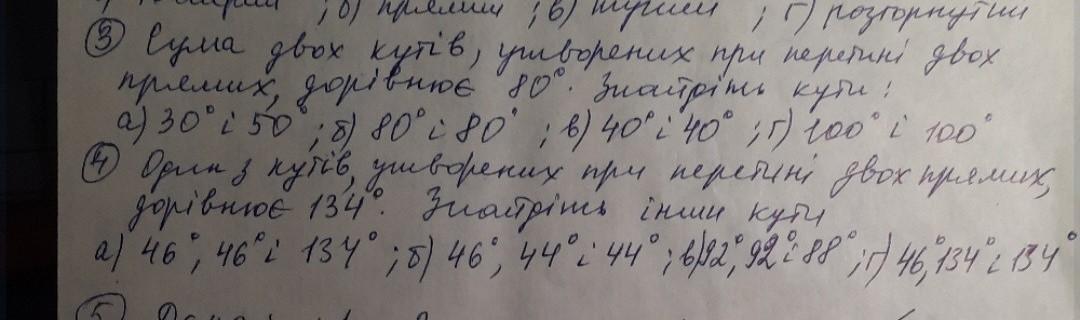 ; б) прямий ; в) тупий ; г) розгорнутий
③ Сума двох кутів, утворених при перетині двох
прямих, дорівнює 80°. Знайдіть кути:
а) 30° і 50° ; б) 80° і 80° ; в) 40° і 40° ; г) 100° і 100°
④ Один з кутів, утворених при перетині двох прямих,
дорівнює 134°. Знайдіть інши кути
а) 46°, 46° і 134° ; б) 46°, 44° і 44° ; в) 92°, 92° і 88° ; г) 46°, 134° і 134°
⑤